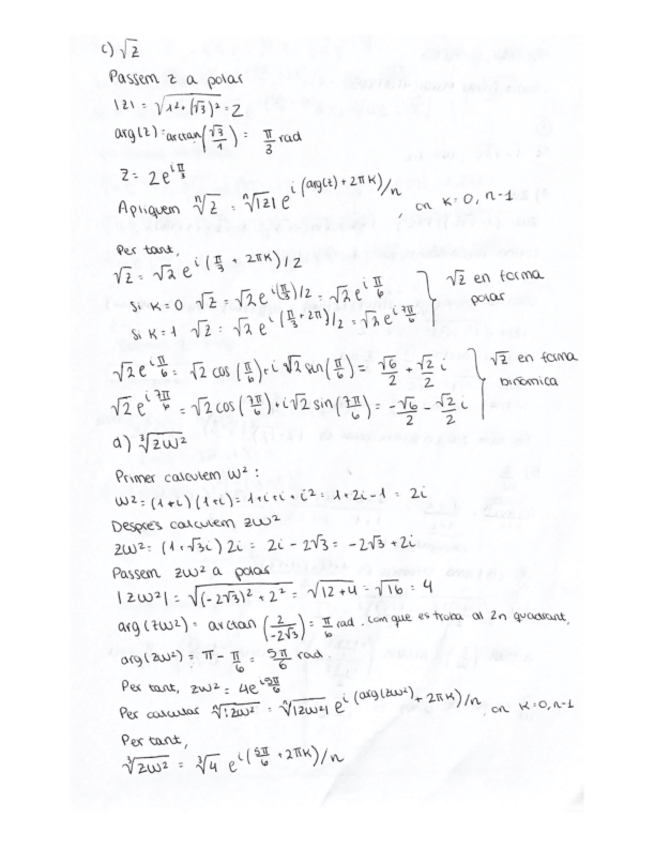 c) √z
Passem z a polar
|z| = √(1²+(√3)²) = 2
arg(z) = arctan(√3/1) = π/3 rad
z = 2e^(iπ/3)
Apliquem ⁿ√z = ⁿ√|z| e^(i(arg(z)+2πk)/n), on k=0, n-1
Per tant,
√z = √2 e^(i(π/3 + 2πk)/2)
Si k=0 √z = √2 e^(i(π/3)/2) = √2 e^(iπ/6)
Si k=1 √z = √2 e^(i(π/3+2π)/2) = √2 e^(i7π/6)
√z en forma
polar
√2 e^(iπ/6) = √2 cos(π/6) + i√2 sin(π/6) = √6/2 + √2/2 i
√2 e^(i7π/6) = √2 cos(7π/6) + i√2 sin(7π/6) = -√6/2 - √2/2 i
√z en forma
binòmica
d) ³√zw²
Primer calculem w²:
w² = (1+i)(1+i) = 1+i+i+i² = 1+2i-1 = 2i
Després calculem zw²
zw² = (1+√3i) 2i = 2i - 2√3 = -2√3 + 2i
Passem zw² a polar
|zw²| = √((-2√3)² + 2²) = √(12+4) = √16 = 4
arg(zw²) = arctan(2/-2√3) = π/6 rad. Com que es troba al 2n quadrant,
arg(zw²) = π - π/6 = 5π/6 rad.
Per tant, zw² = 4e^(i5π/6)
Per calcular ⁿ√zw² = ⁿ√|zw²| e^(i(arg(zw²)+2πk)/n), on k=0, n-1
Per tant,
³√zw² = ³√4 e^(i(5π/6 + 2πk)/n)